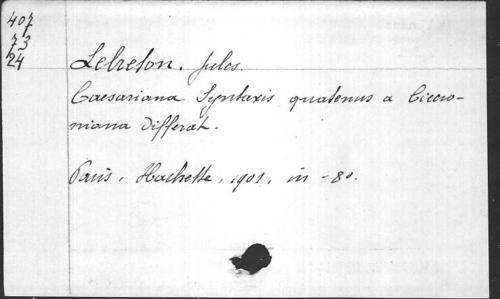 407
73
24
Lebreton. Jules.
Caesariana Syntaxis quatenus a Cicero-
niana differat.
Paris, Hachette, 1901, in-8o.